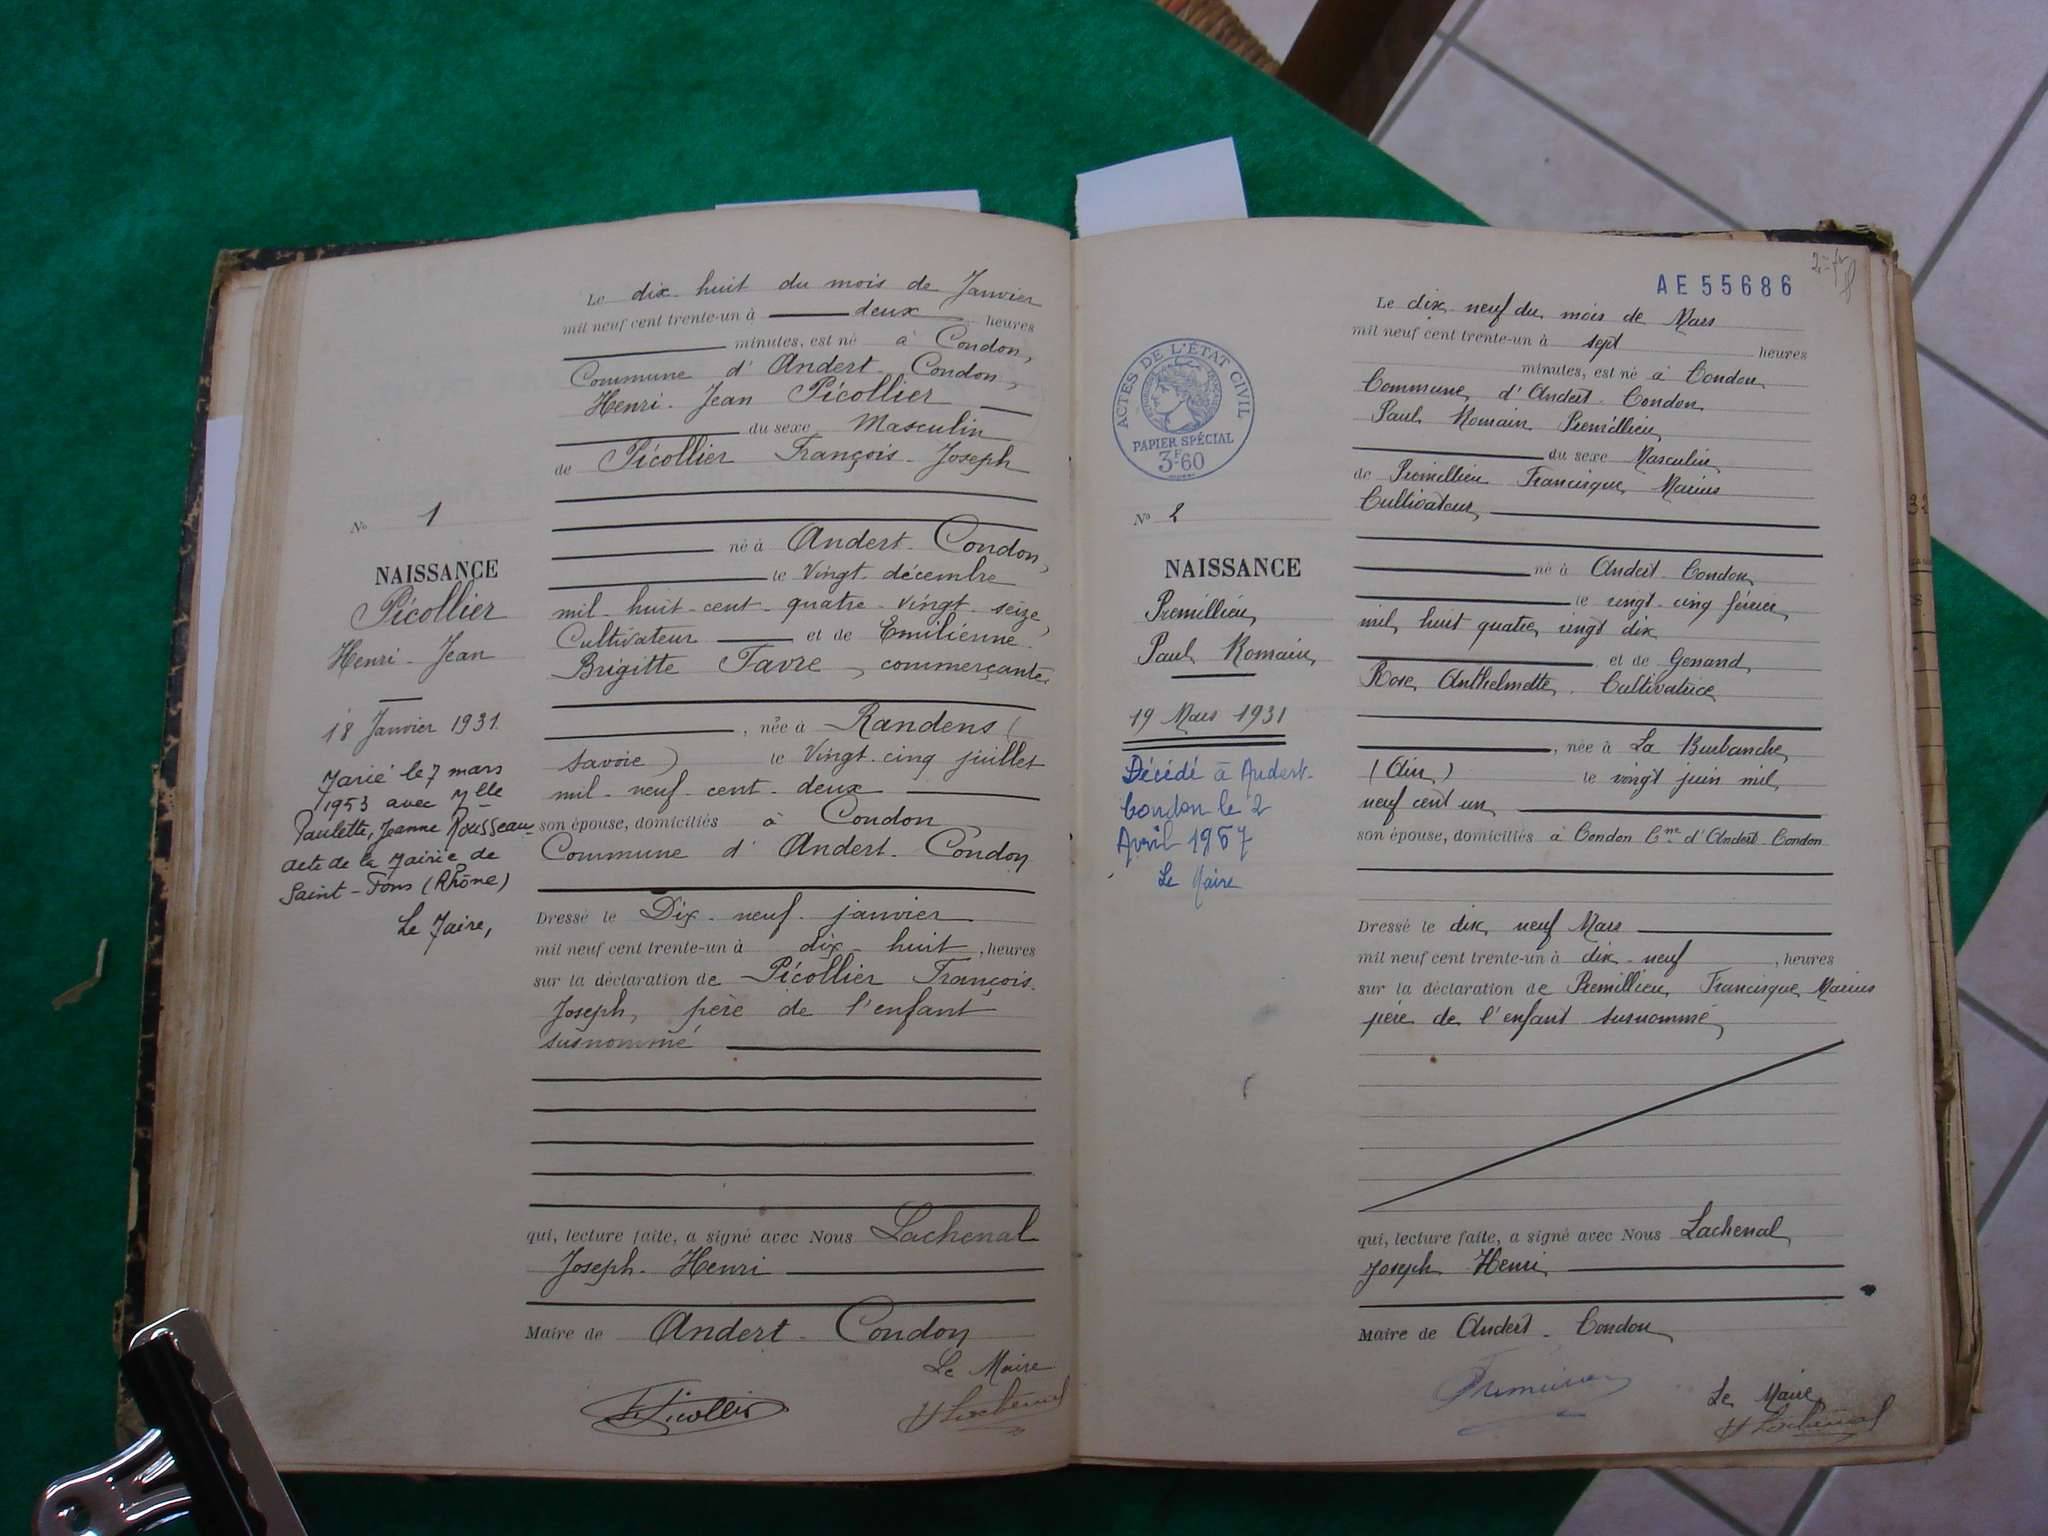 Le dix-huit du mois de Janvier
mil neuf cent trente-un à deux heures
minutes, est né à Condon,
Commune d'Andert-Condon,
Henri-Jean Picollier
du sexe Masculin
de Picollier François-Joseph
né à Andert-Condon,
le Vingt-décembre
mil-huit-cent-quatre-vingt-seize,
Cultivateur et de Emilienne
Brigitte Favre, commerçante,
, née à Randens (
Savoie) le Vingt-cinq juillet
mil-neuf-cent-deux
son épouse, domiciliés à Condon
Commune d'Andert-Condon
Dressé le Dix-neuf janvier
mil neuf cent trente-un à dix-huit, heures
sur la déclaration de Picollier François-
Joseph, père de l'enfant
susnommé
qui, lecture faite, a signé avec Nous Lachenal
Joseph-Henri
Maire de Andert-Condon
Le Maire
F. Picollier
H Lachenal
No 1
NAISSANCE
Picollier
Henri-Jean
18 Janvier 1931.
Marié le 7 mars
1953 avec Mlle
Paulette, Jeanne Rousseau
acte de la Mairie de
Saint-Fons (Rhône)
Le Maire,
AE 55686
ACTES DE L'ÉTAT CIVIL
PAPIER SPÉCIAL
3F60
No 2
NAISSANCE
Premillieu
Paul Romain
19 Mars 1931
Décédé à Andert-
Condon le 2
Avril 1967
Le Maire
Le dix neuf du mois de Mars
mil neuf cent trente-un à sept heures
minutes, est né à Condon
Commune d'Andert-Condon
Paul Romain Premillieu
du sexe Masculin
de Premillieu Francisque Marius
Cultivateur
né à Andert-Condon
le vingt-cinq février
mil huit quatre vingt dix
et de Genand
Rose Anthelmette, Cultivatrice
, née à La Burbanche
(Ain) le vingt juin mil
neuf cent un
son épouse, domiciliés à Condon Cne d'Andert-Condon
Dressé le dix neuf Mars
mil neuf cent trente-un à dix-neuf, heures
sur la déclaration de Premillieu Francisque Marius
père de l'enfant susnommé
qui, lecture faite, a signé avec Nous Lachenal
Joseph Henri
Maire de Andert-Condon
Le Maire
H Lachenal